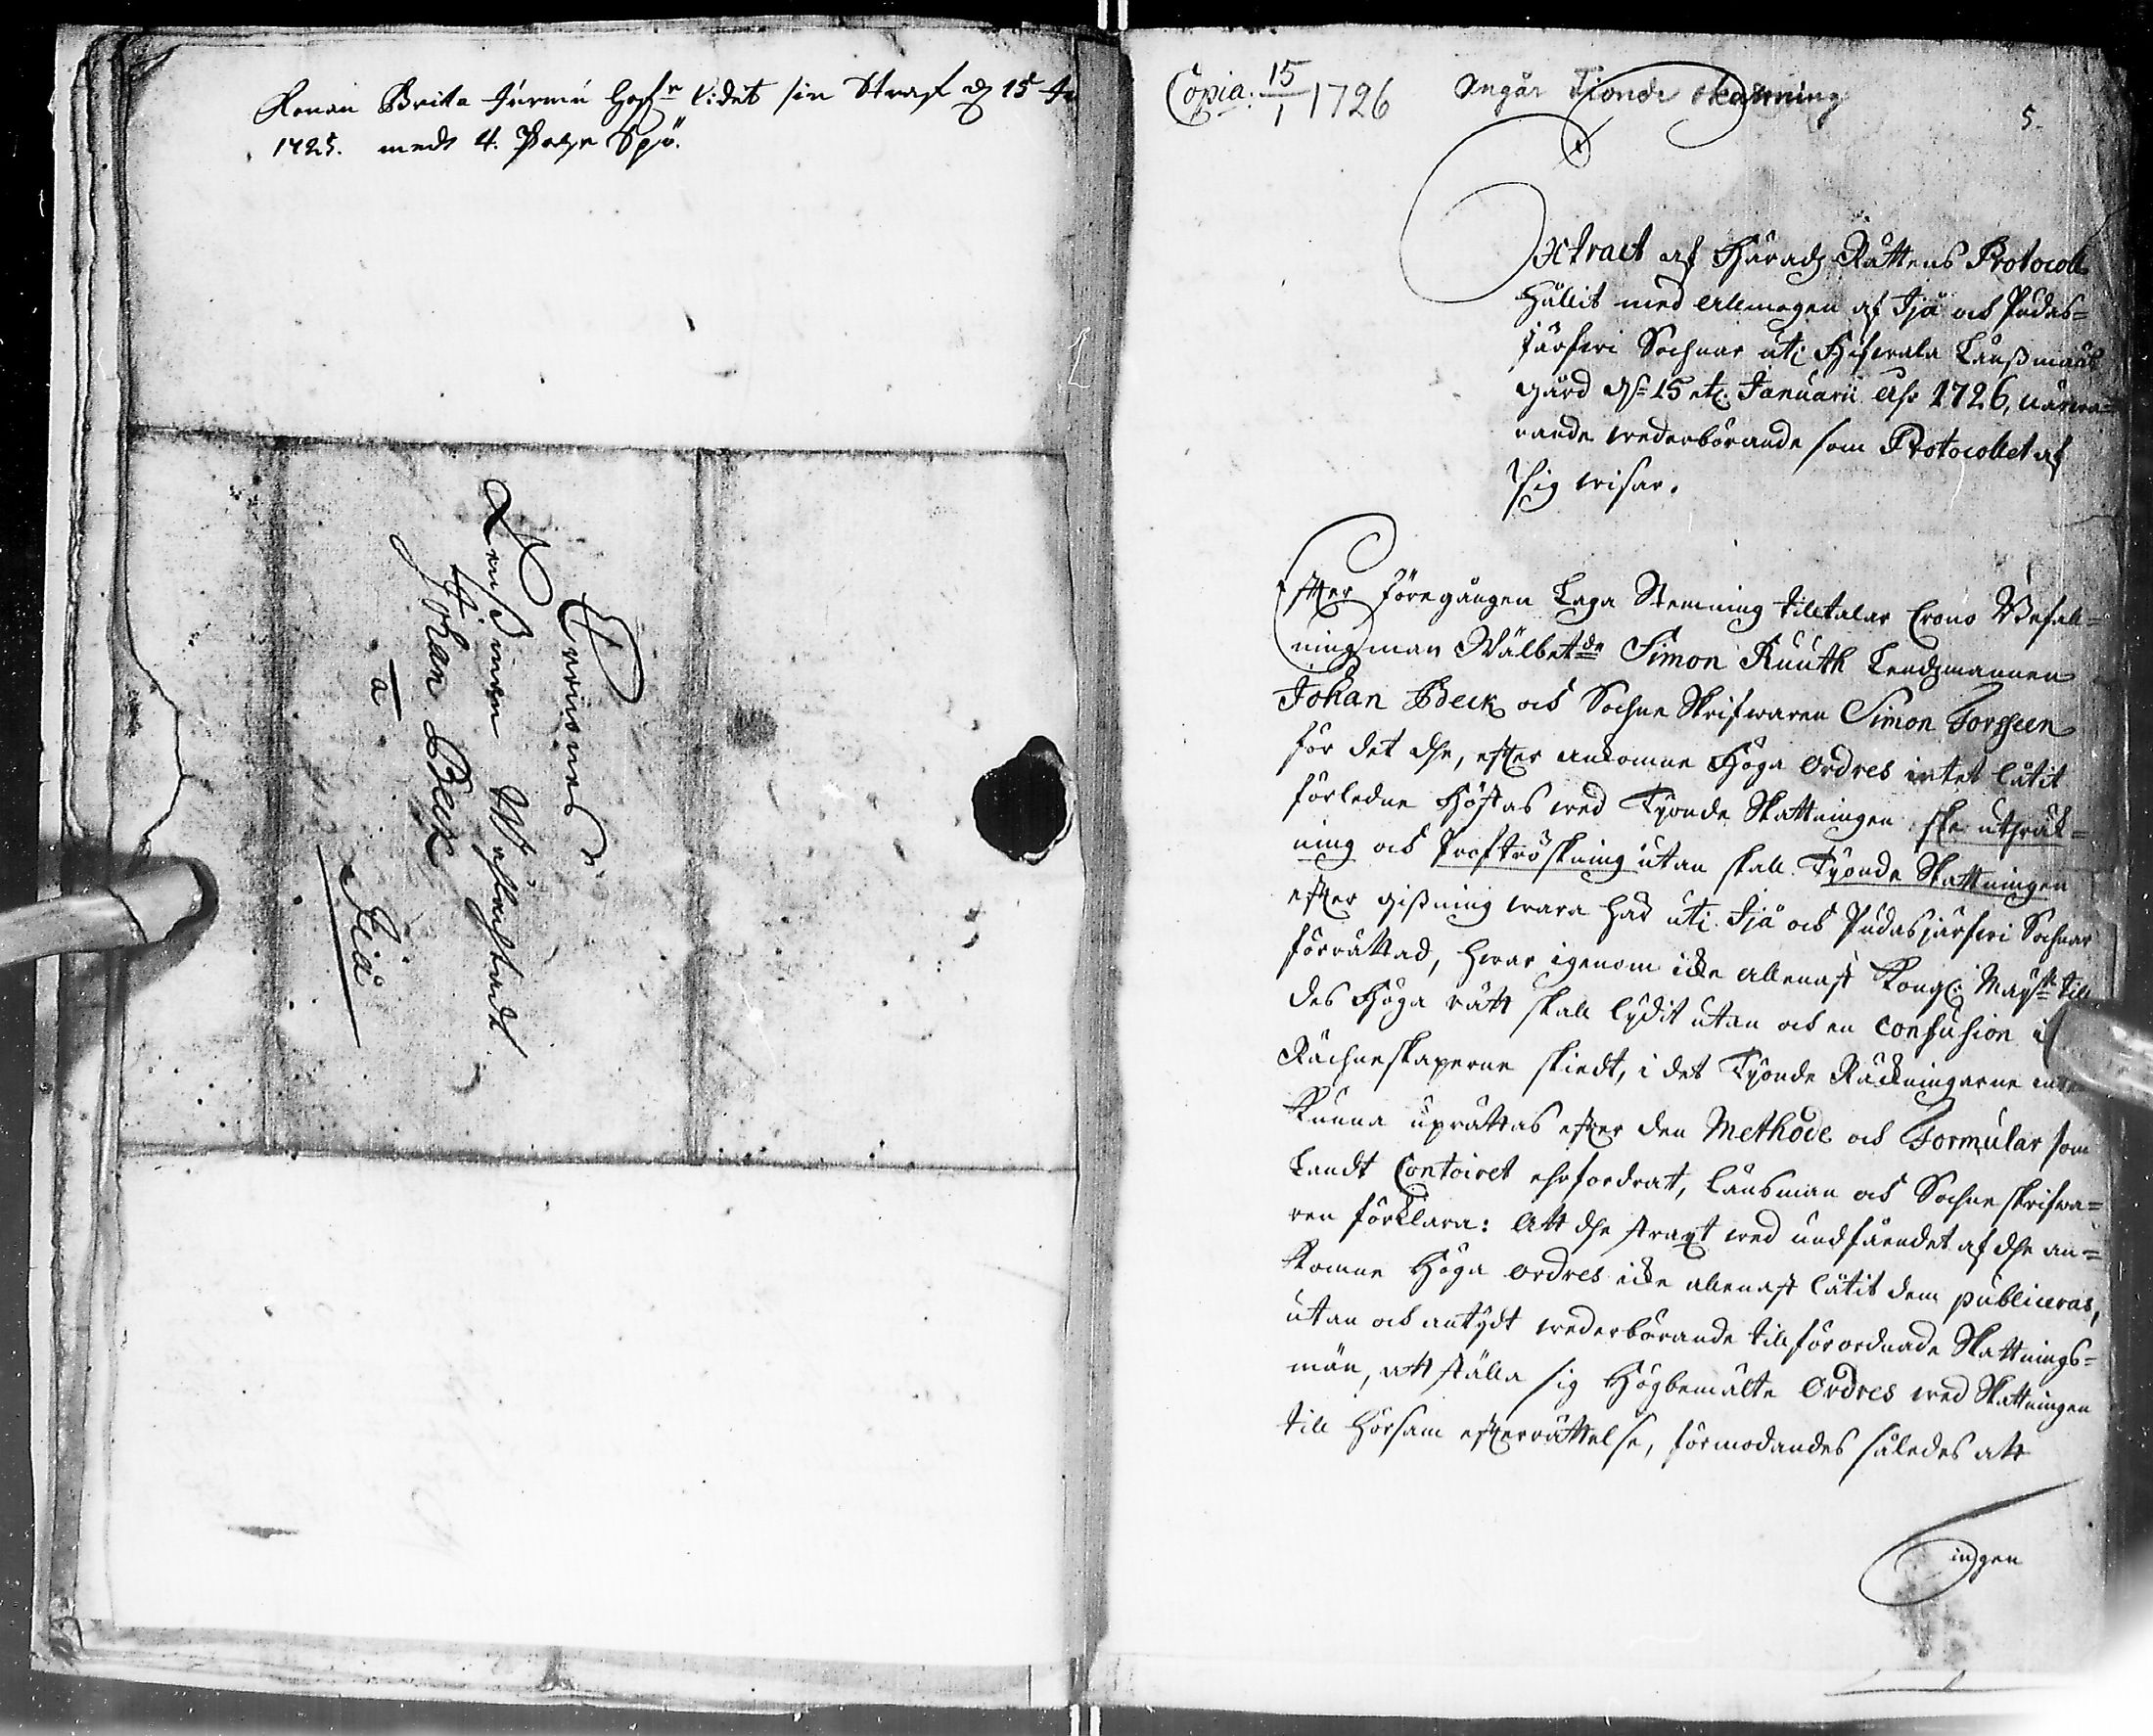 Konan Brita Jurmu hafr lidit sin Straf d. 15 Ja
1725. med 4. Par Spö.
Cronones
Lensman Wählachtadt
Johan Beck
a
Jiå
Copia. 15/1 1726 Angår Tionde skattning
5.
Extract af Härads Rättens Protocoll
Hållit med Allmogen af Ijå och Pudas=
järfwi Sochnar uti Länßmans
gård d. 15 etc. Januarii Åhr 1726, närwa=
rande wederbörande som Protocollet af
sig wisar.
Efter föregången Laga Stemning tilltalar Crono Befall=
ningzman Wälbetde Simon Ruuth Lendzmannen
Johan Beck och Sochne Skrifwaren Simon Forsseen
för det dhe, efter ankomne Höga Ordres intet låtit
förledne Höstas wed Tyonde Skattningen ske uthräk=
ning och Proftröskning utan skall Tyonde Skattningen
efter gißning wara här uti Ijå och Pudasjärfwi Sochnar
förrättad, hwar igenom icke allenast Kongl. Mayst till
des Höga rätt skall lydit utan och en confusion i
Rächneskaperne skiedt, i det Tyonde Räckningarne intet
Kunna uprättas efter den Methode och Formular som
Landt Contoiret ehrfordrat, Länsman och Sochne skrifwa=
ren förklara: Att dhe straxt wed undfåendet af dhe an=
komne Höga ordres icke allenast låtit dem publiceras,
utan och antydt wederbörande till förordnade Skattnings=
män, att ställa sig Högbemälte Ordres wed Skattningen
till hörsam efterrättelse, förmodandes således att
ingen